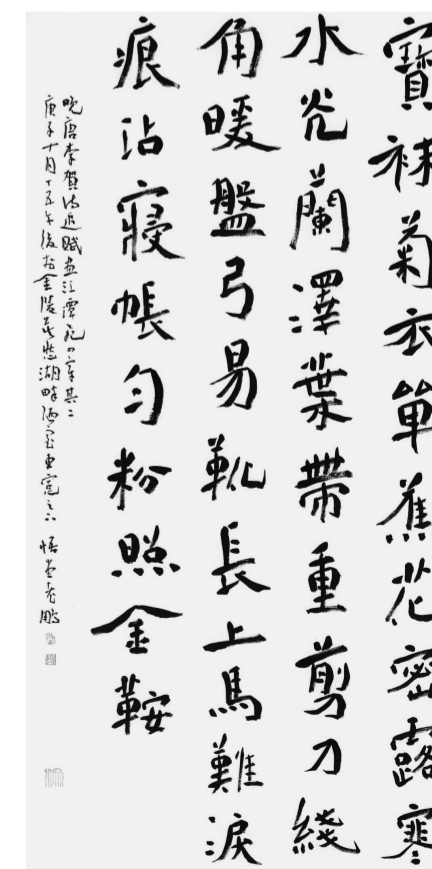 寶袜菊衣單蕉花密露寒
水光蘭澤葉帶重剪刀綫
角暖盤弓易靴長上馬難淚
痕沾寢帳勻粉照金鞍
晚唐李賀詩追賦畫江潭苑四章其二
庚子十月十五午後於金陵莫愁湖畔陋室東窗之下 悟堂老鵬